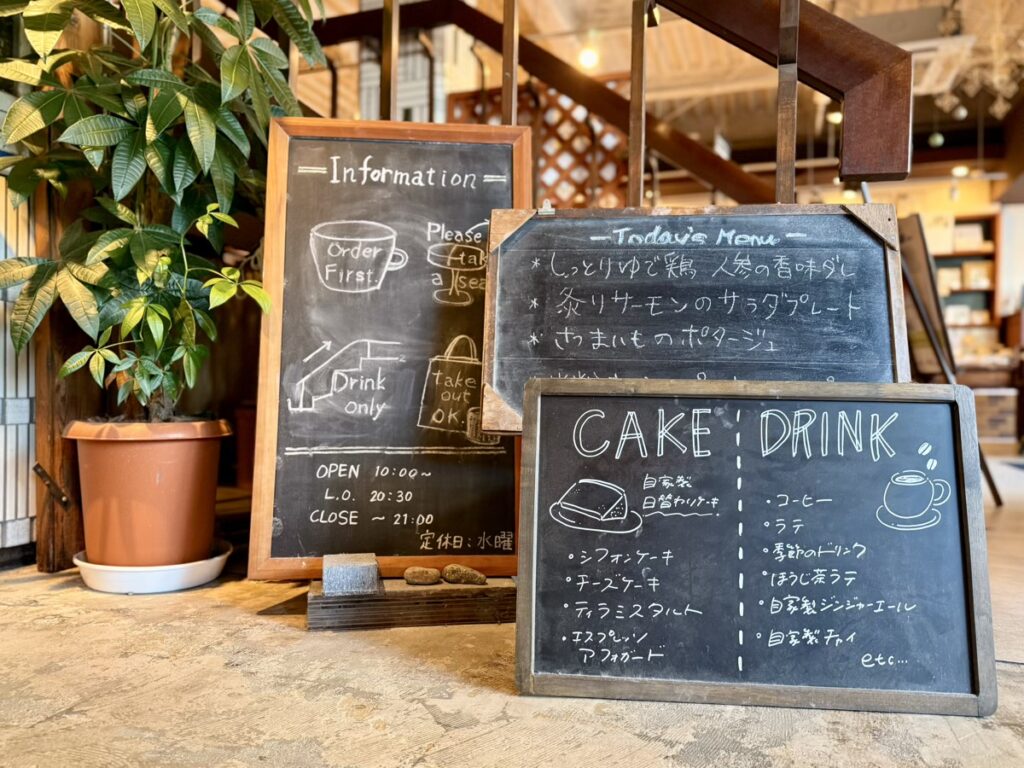 Information
Order
First.
Please
tak
a sea
Drink
only
2
Take
out
OK.
OPEN 10:00~
L.O. 20:30
CLOSE ~ 21:00
定休日:水曜
Today's Menu
* しっとりゆで鶏 人参の香味ダレ
* 炙りサーモンのサラダプレート
* さつまいものポタージュ
CAKE
自家製
日替わりケーキ
・シフォンケーキ
・チーズケーキ
・ティラミスタルト
・エスプレッソ
アフォガード
DRINK
・コーヒー
・ラテ
・季節のドリンク
・ほうじ茶ラテ
・自家製ジンジャーエール
・自家製チャイ
etc...